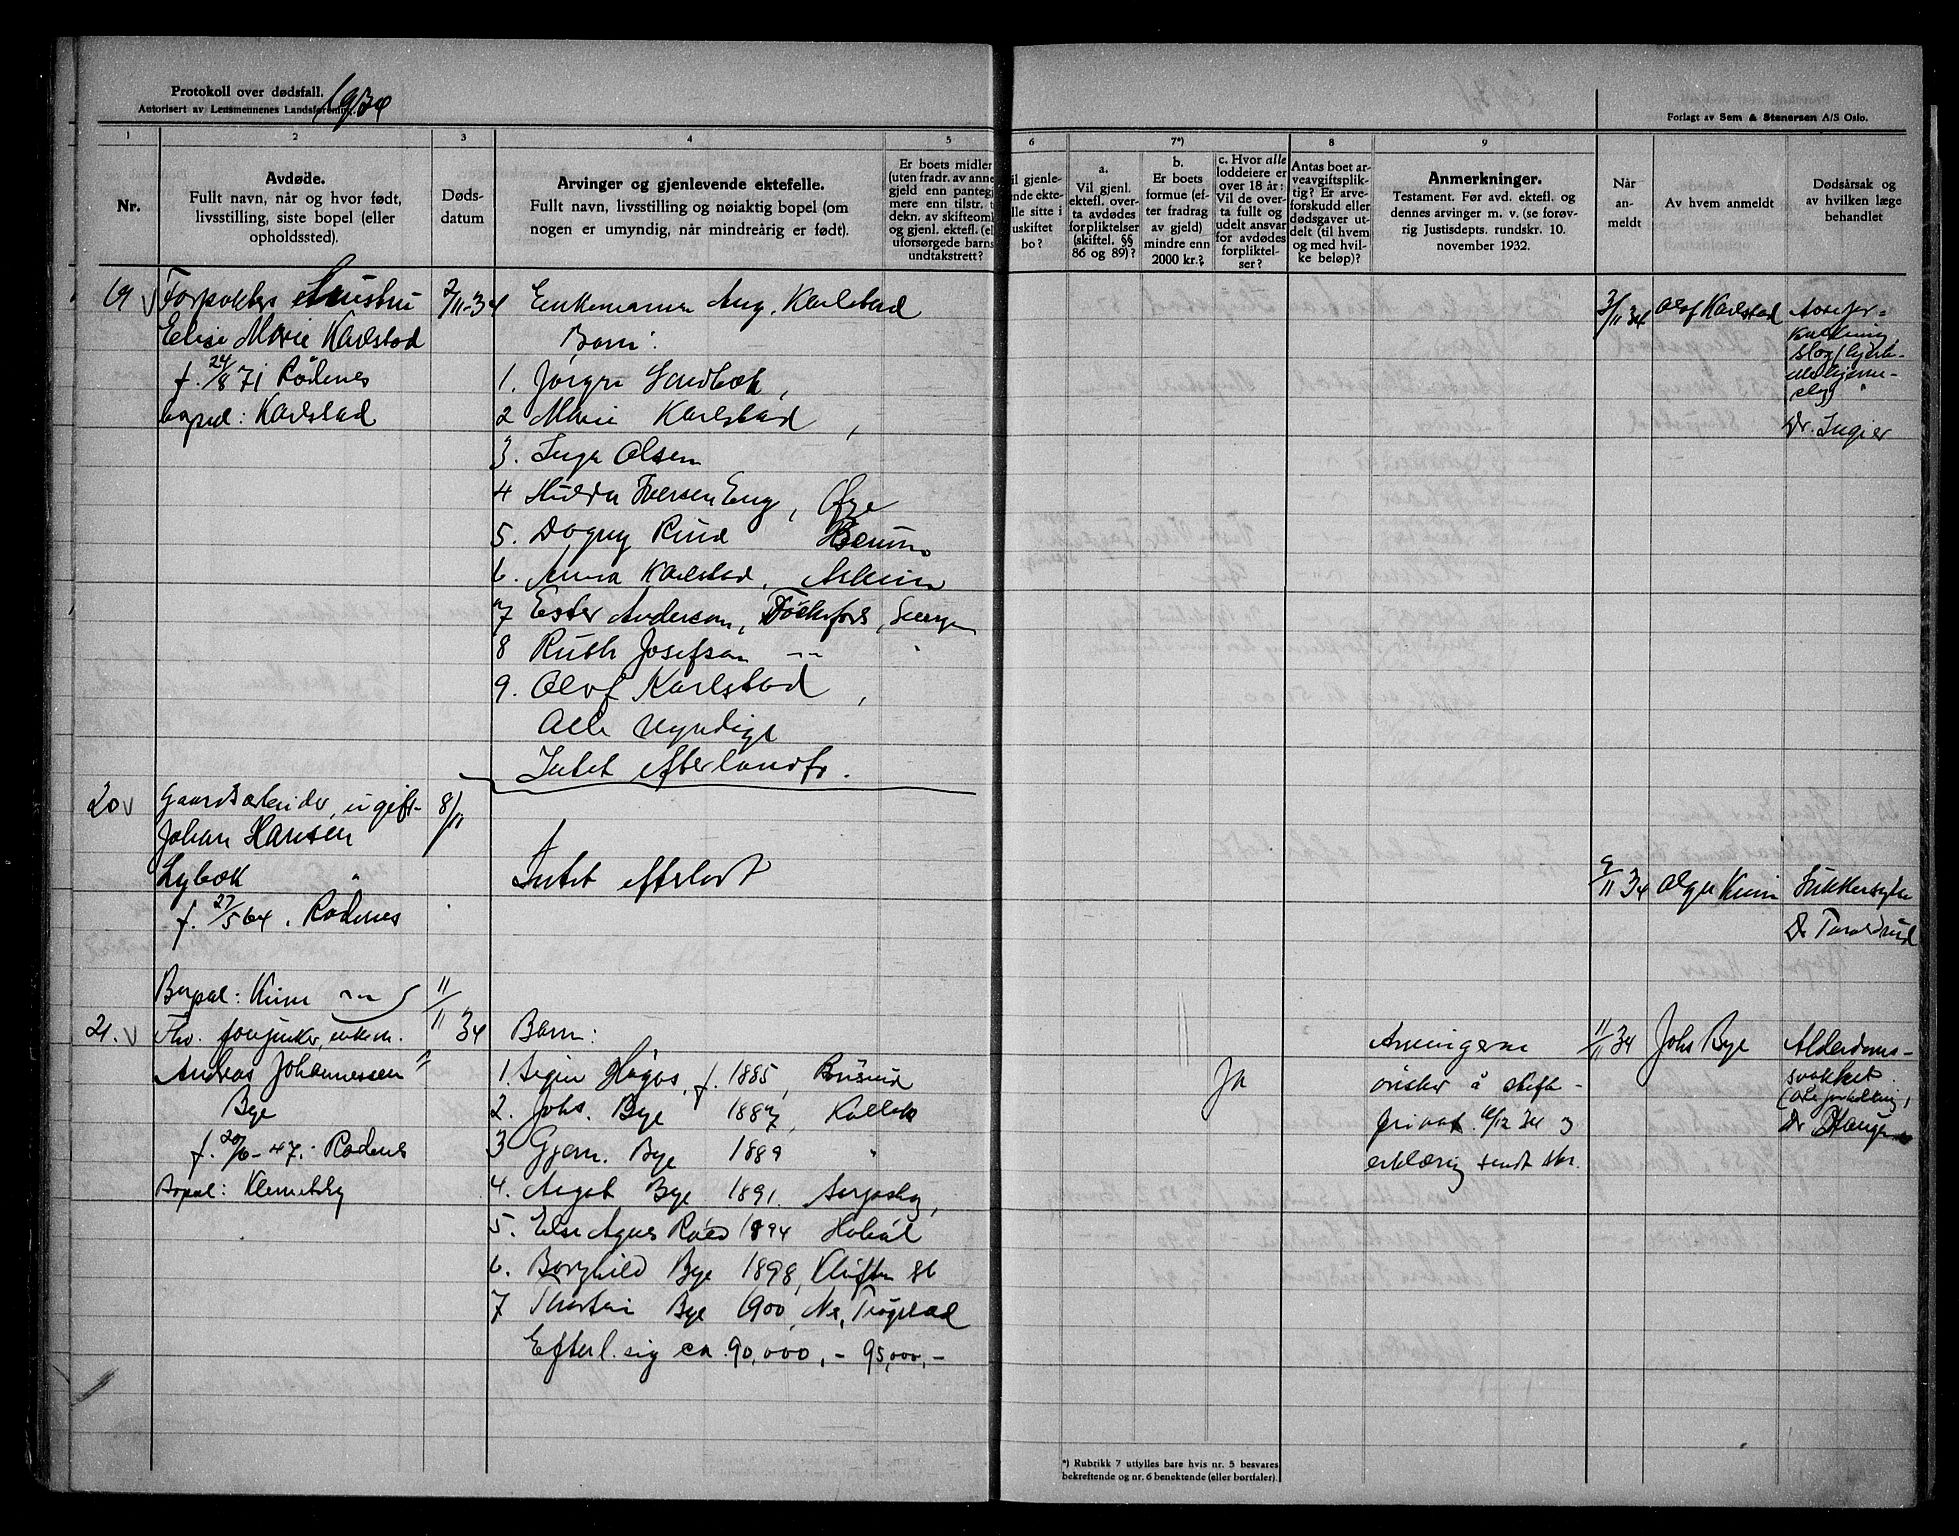 Protokoll over dødsfall. 1934
Autorisert av Lensmennenes Landsforening.
Forlagt av Sem & Stenersen A/S Oslo.
1 2 3 4 5 6 7*) 8 9
Nr.
Avdøde.
Fullt navn, når og hvor født,
livsstilling, siste bopel (eller
opholdssted).
Døds-
datum
Arvinger og gjenlevende ektefelle.
Fullt navn, livsstilling og nøiaktig bopel (om
nogen er umyndig, når mindreårig er født).
Er boets midler
(uten fradr. av anne
gjeld enn pantegj
mere enn tilstr. t
dekn. av skifteomk
og gjenl. ektef. (el
uforsørgede barns
undtakstrett?
il gjenle-
nde ekte-
lle sitte i
uskiftet
bo?
a.
Vil gjenl.
ektef. over-
ta avdødes
forpliktelser
(skiftel. §§
86 og 89)?
b.
Er boets
formue (ef-
ter fradrag
av gjeld)
mindre enn
2000 kr.?
c. Hvor alle
loddeiere er
over 18 år:
Vil de over-
ta fullt og
udelt ansvar
for avdødes
forpliktel-
ser?
Antas boet ar-
veavgiftsplik-
tig? Er arve-
forskudd eller
dødsgaver ut-
delt (til hvem
og med hvil-
ke beløp)?
Anmerkninger.
Testament. Før avd. ektef. og
dennes arvinger m. v. (se forøv-
rig Justisdepts. rundskr. 10.
november 1932.
Når
an-
meldt
Av hvem anmeldt
Dødsårsak og
av hvilken læge
behandlet
19 v Forpakters hustru
Elise Marie Karlstad
f. 24/8 71 Rødenes
bopel: Karlstad
2/11-34
Enkemann Aug. Karlstad
Barn:
1. Jørgen Sandbæk,
2 Marie Karlstad,
3. Inga Olsen
4 Hulda Iversen Eng,
5. Dagny Rud Bærum
6. Anna Karlstad, Askim
7 Ester Anderson, Töcksfors,
8 Ruth Josefson
9. Olof Karlstad,
Alle myndige
Intet efterlandt.
3/11 34 Olof Karlstad
Dr. Ingier
20 v Gaardsarbeider, ugift
Johan Hansen
Lybæk
f. 27/5 64. Rødenes
Bopæl: Kinn
8/11
Intet efterlatt
9/11 34 Olga Kinn Sukkersyke
Dr Tandrud
21. v
Andreas Johannessen
Bye
47. Rødenes
Bopæl: Klemetsby
11/11 34
Barn:
1. f. 1885,
2. Johs. Bye 1887,
3 Bye 1889
4. Aagot Bye 1891.
5. Else Agnes Røed 1894 Hobøl
6. Borghild Bye 1898, Kløften st
7 Thorstein Bye 1900, Ne. Trøgstad
Efterl. sig ca. 90,000,- 95,000,-
Ja
Arvingerne
ønsker å skifte
privat. 34 og
erklæring sendt skr.
11/11 34 Johs Bye Alderdoms-
svakhet
(åreforkalkning)
*) Rubrikk 7 utfylles bare hvis nr. 5 besvares
bekreftende og nr. 6 benektende (eller bortfaler).